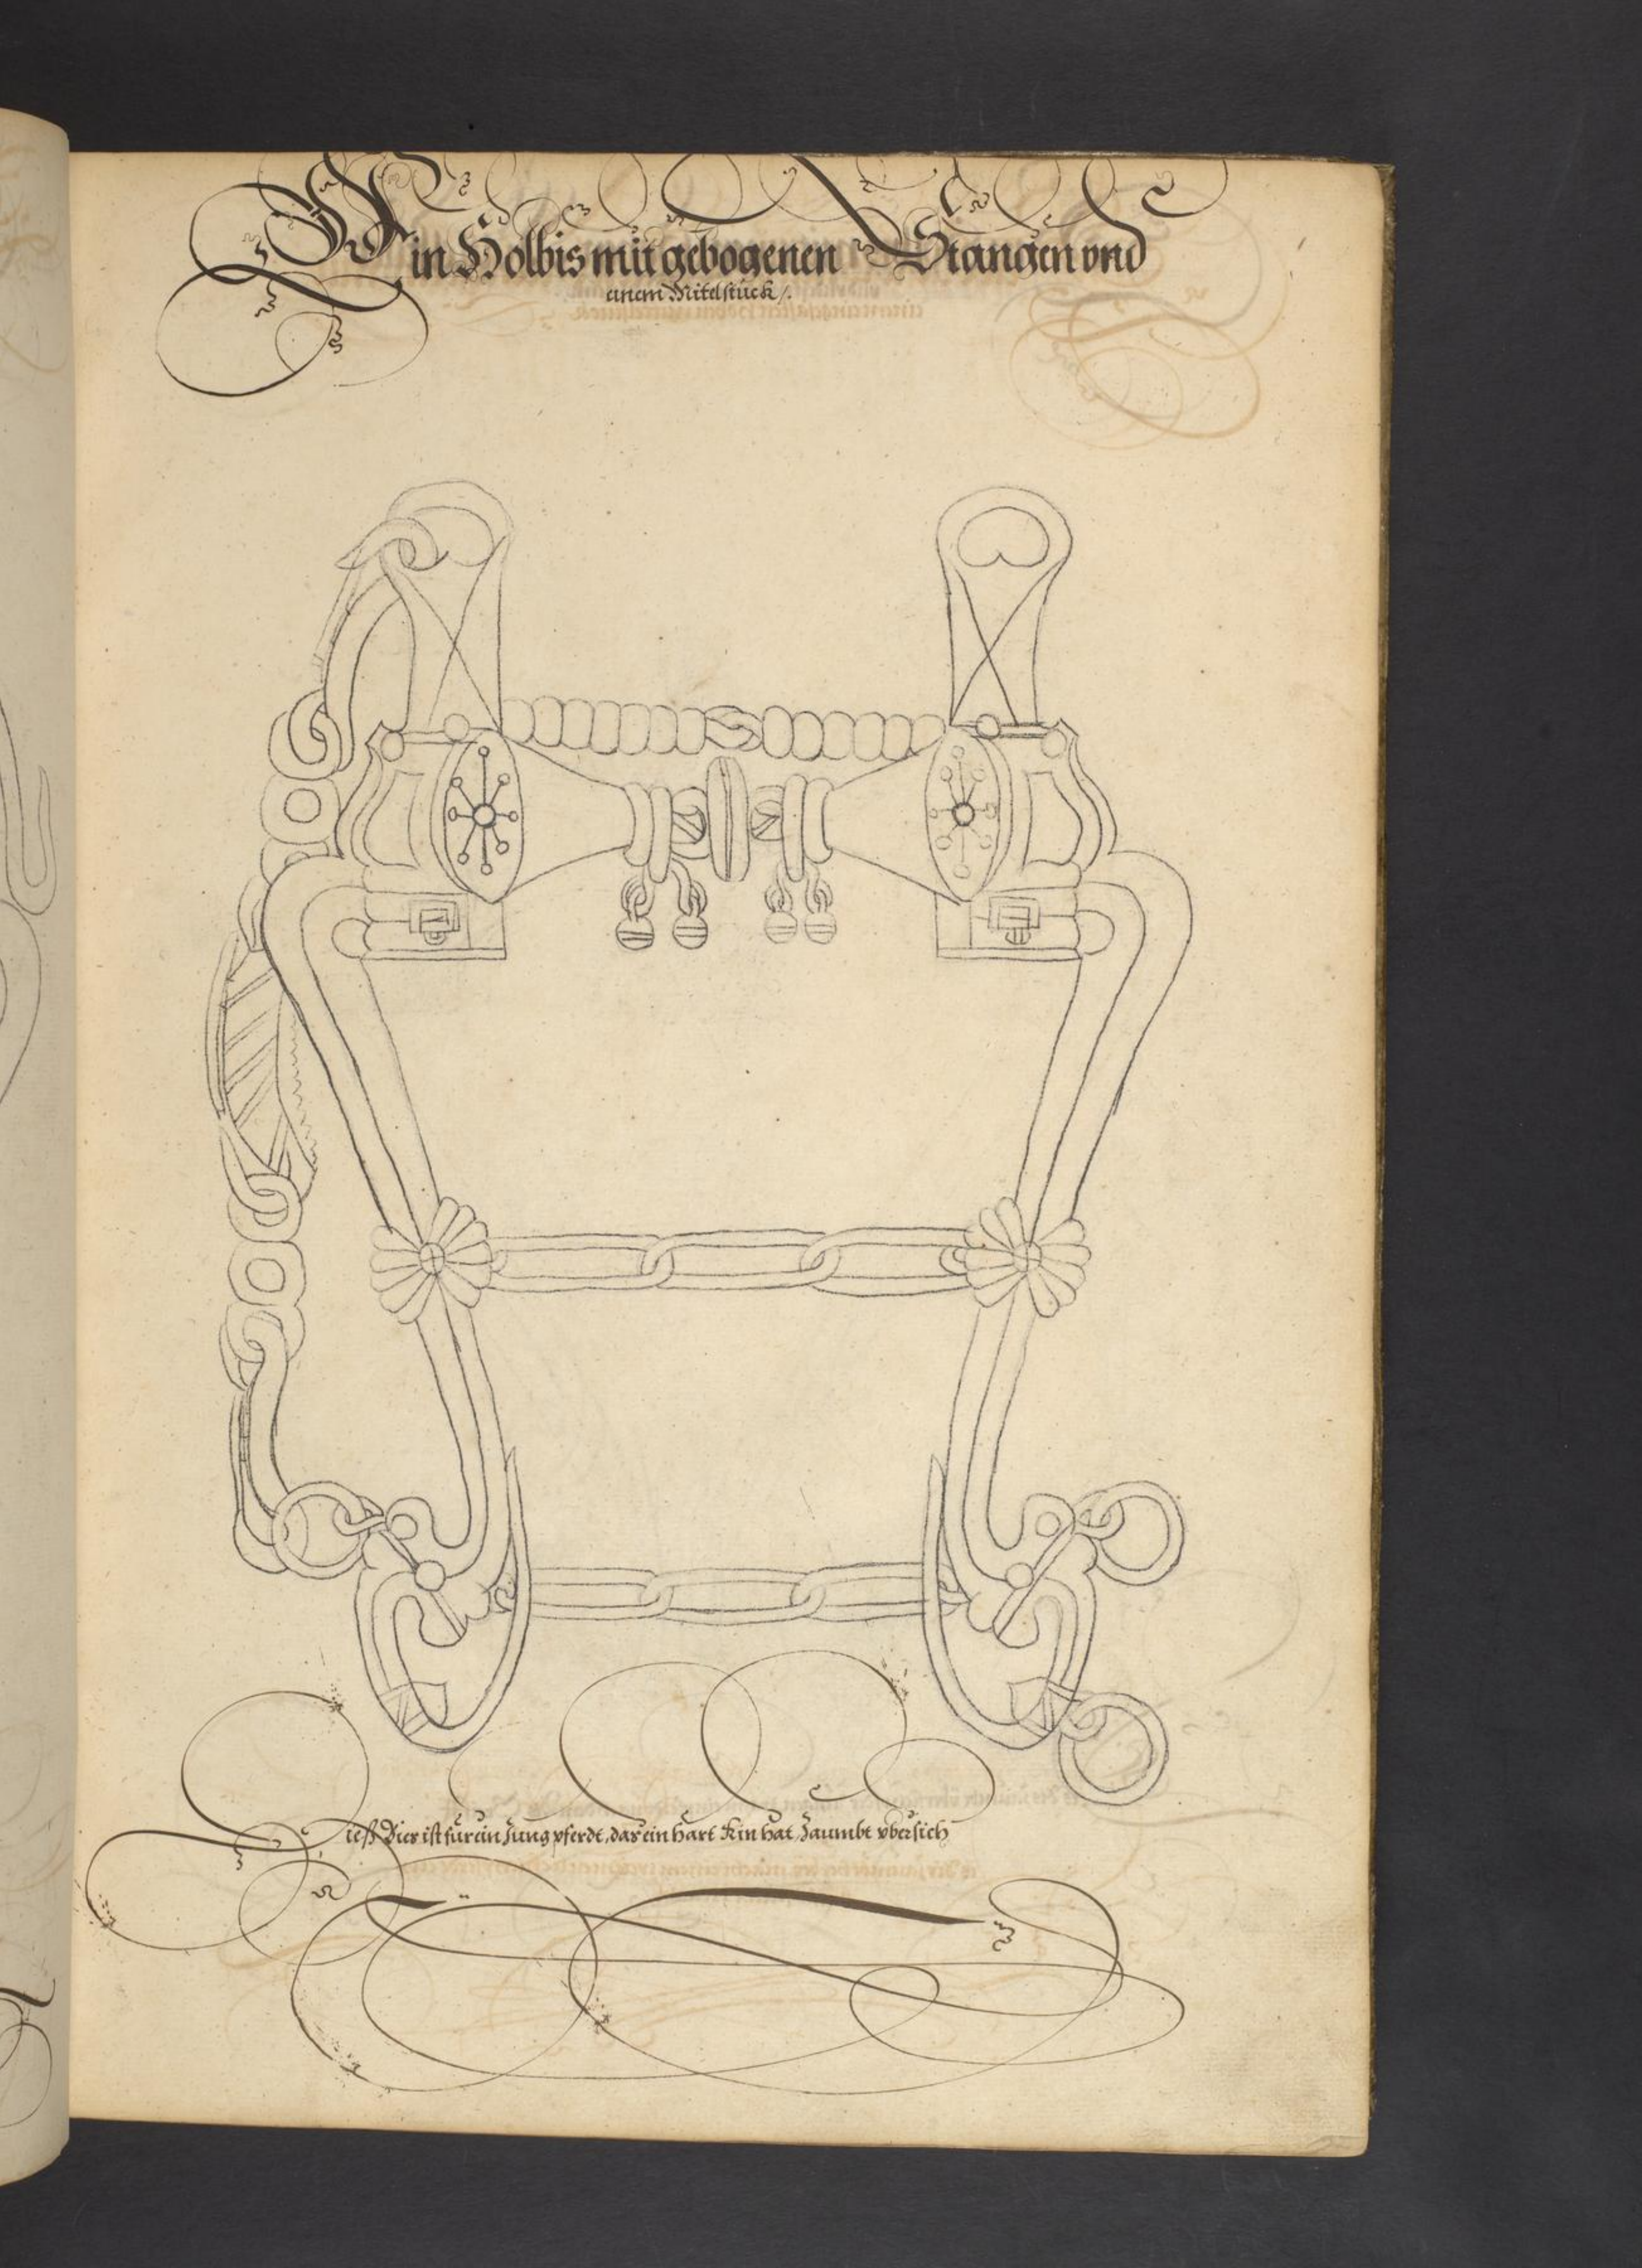 Ein Holbis mit gebogenen Stangen vnd
einem Mitelstuck /.
Dieß Bies ist für ein Jung pferdt, das ein hart Kin hat, Zaumbt vbersich